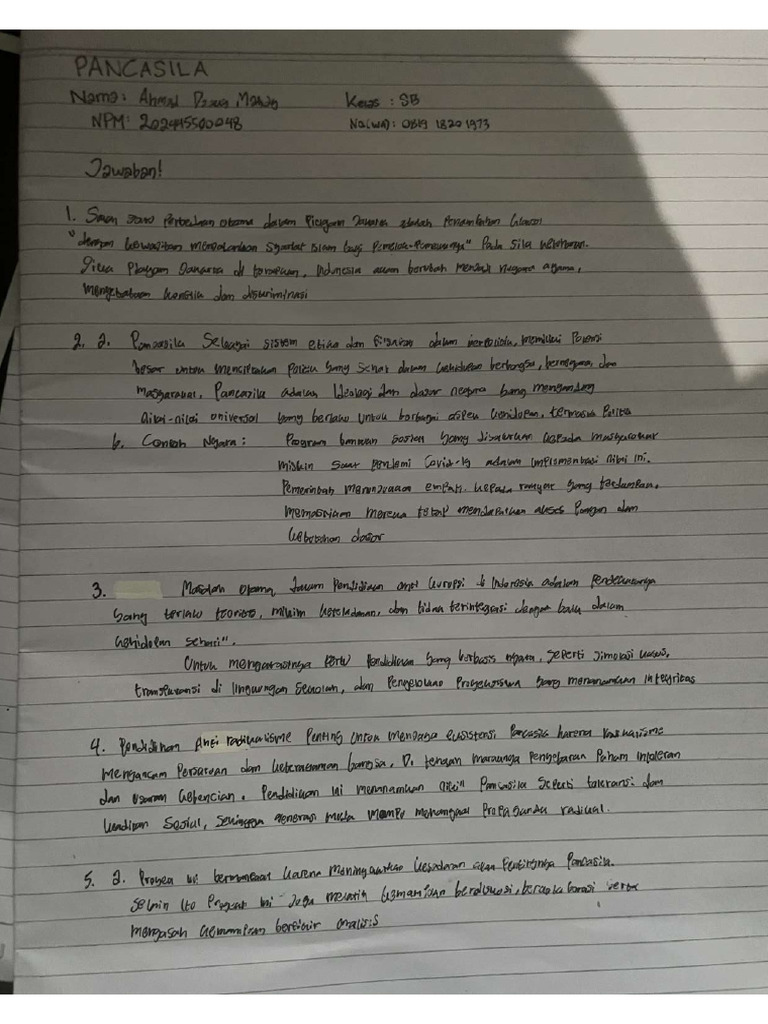 PANCASILA
Nama: Ahmad Kelas : SB
NPM: 202445500048 No(WA): 0819 1820 1973
Jawaban!
1. Salah satu Perbedaan utama dalam Piagam Jakarta adalah Penambahan
"dengan kewajiban menjalankan Syariat Islam bagi Pemeluk-Pemeluknya" Pada Sila
Jika Piagam Jakarta di terapkan, Indonesia akan berubah menjadi negara agama,
menyebabkan konflik dan diskriminasi
2. a. Pancasila Sebagai sistem etika dan filsafat dalam memiliki Potensi
besar untuk menciptakan Politik yang Sehat dalam kehidupan berbangsa, bernegara, dan
masyarakat. Pancasila adalah Ideologi dan dasar negara yang mengandung
nilai-nilai universal yang berlaku untuk berbagai aspek kehidupan, termasuk Politik
b. Contoh Negara : Program bantuan sosial yang disalurkan kepada masyarakat
miskin saat pandemi Covid-19 adalah implementasi nilai ini.
Pemerintah menunjukkan empati kepada rakyat yang terdampak,
memastikan mereka tetap mendapatkan akses Pangan dan
kebutuhan dasar
3. Masalah utama dalam Pendidikan anti korupsi di Indonesia adalah Pendekatannya
yang terlalu teoritis, minim keteladanan, dan tidak terintegrasi dengan baik dalam
kehidupan sehari".
Untuk mengatasinya Perlu Pendidikan yang berbasis nyata, seperti simulasi kasus,
transparansi di lingkungan sekolah, dan yang menanamkan integritas
4. Pendidikan Anti radikalisme Penting untuk menjaga eksistensi Pancasila karena
mengancam Persatuan dan keberagaman bangsa. Di tengah maraknya Penyebaran Paham intoleran
dan ujaran kebencian. Pendidikan ini menanamkan nilai" Pancasila seperti toleransi dan
keadilan Sosial, sehingga generasi muda mampu menangkal Propaganda radikal.
5. a. Proyek ini bermanfaat karena meningkatkan kesadaran akan Pentingnya Pancasila.
Selain itu Proyek ini juga melatih kemampuan berdiskusi, serta
mengasah kemampuan berfikir analisis